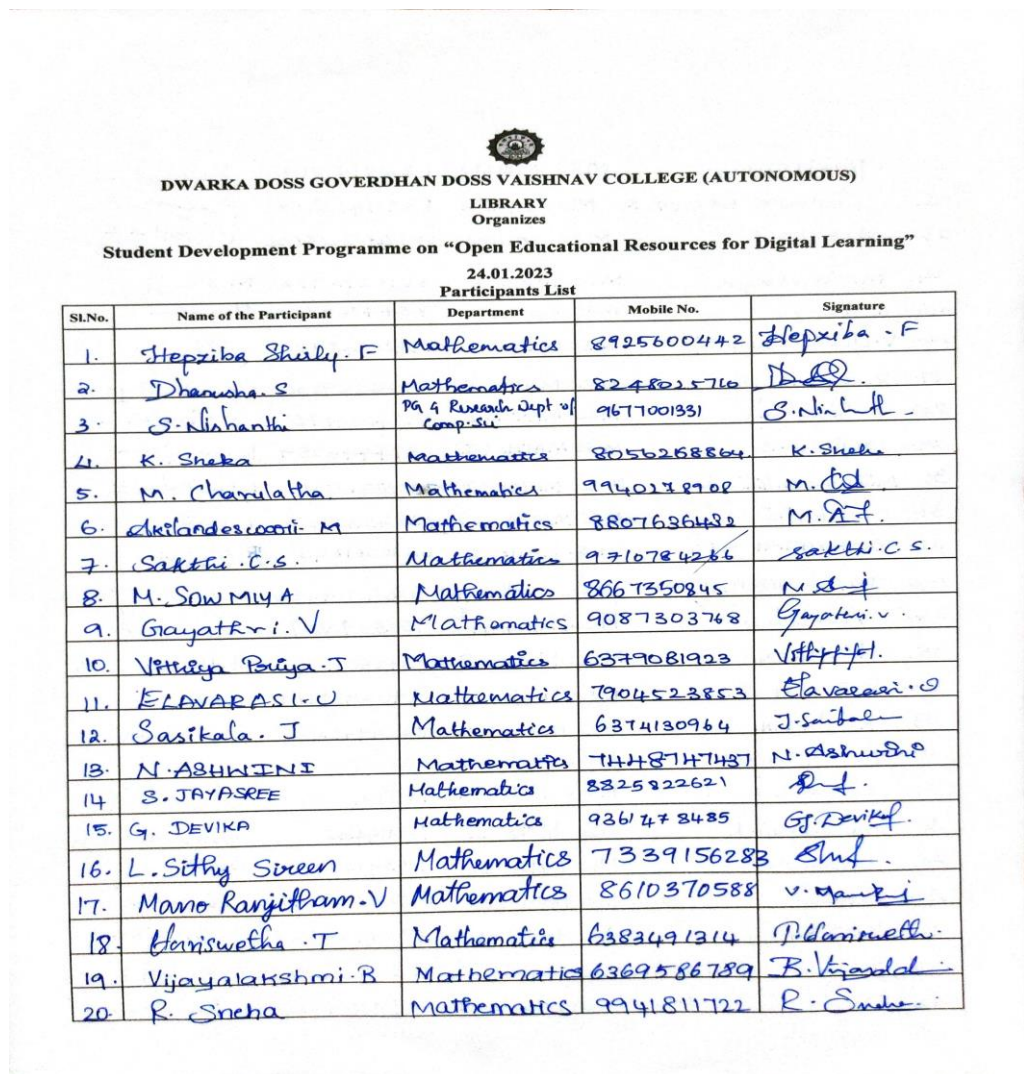 DWARKA DOSS GOVERDHAN DOSS VAISHNAV COLLEGE (AUTONOMOUS)
LIBRARY
Organizes
Student Development Programme on “Open Educational Resources for Digital Learning”
24.01.2023
Participants List
Sl.No. Name of the Participant Department Mobile No. Signature
1. Hepziba Shirly. F Mathematics 8925600442 Hepziba - F
2. Dhanusha. S Mathematics 8248025710
3. S. Nishanthi PG & Research Dept of Comp. Sci 9677001331
4. K. Sneka Mathematics 8056268864 K. Sneka
5. M. Charulatha Mathematics 9940278908
6. Akilandeswari. M Mathematics 8807636432
7. Sakthi . C. S. Mathematics 9710784266 Sakthi. C S.
8. M. SOWMIYA Mathematics 8667350845
9. Gayathri. V Mathematics 9087303768 Gayathri. v
10. Vithiya Priya. J Mathematics 6379081923
11. ELAVARASI. U Mathematics 7904523853
12. Sasikala. J Mathematics 6374130964
13. N. ASHWINI Mathematics 7448747437 N. Ashwini
14 S. JAYASREE Mathematics 8825822621
15. G. DEVIKA Mathematics 9361478485 G. Devika
16. L. Sithy Sireen Mathematics 7339156283
17. Mano Ranjitham. V Mathematics 8610370588
18. Hariswetha . T Mathematics 6383491314
19. Vijayalakshmi. B Mathematics 6369586789
20. R. Sneha Mathematics 9941811722 R. Sneha